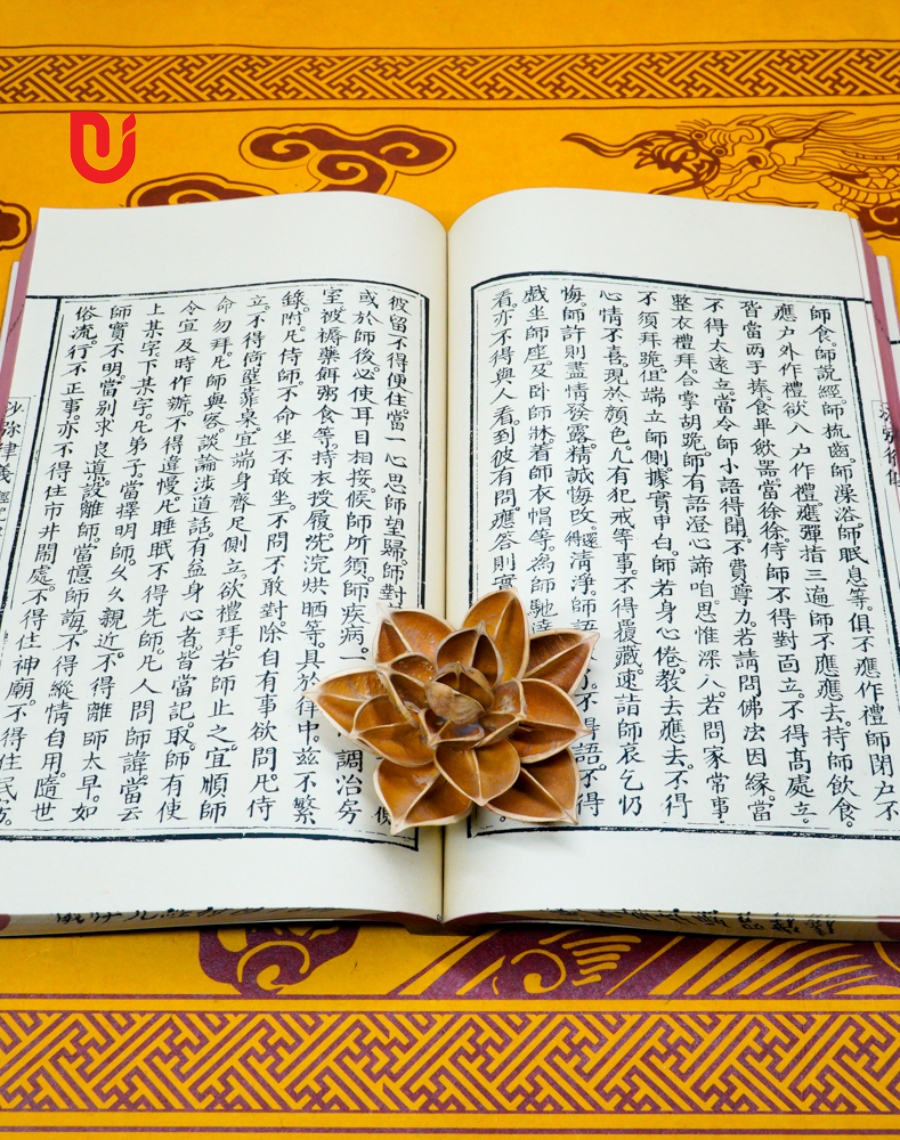 師食。師說經。師梳齒。師澡浴。師眠息等。俱不應作禮。師閉户。不
應户外作禮。欲入户作禮。應彈指三遍。師不應。應去。持師飲食。
皆當兩手捧。食畢斂器。當徐徐。侍師不得對面立。不得高處立。
不得太遠立。當令師小語得聞。不費尊力。若請問佛法因緣。當
整衣禮拜。合掌胡跪。師有語。澄心諦思惟深入。若問家常事。
不須拜跪。但端立師側。據實申白。師若身心倦。教去應去。不得
心情不喜。現於顏色。凡有犯戒等事。不得覆藏。速詣師哀乞
悔。師許則盡情發露。精誠悔改。還得清淨。師語不得語。不得
戲坐師座。及臥師牀。着師衣帽等。為師馳達
看。亦不得與人看。到彼有問。應答則實
彼留不得便住。當一心思師望歸。師對
或於師後。必使耳目相接。候師所須。師疾病。一調治。房
室被褥。藥餌粥食等。持衣授履。洗浣烘晒等。具於律中。茲不繁
錄。附。凡侍師。不命坐不敢坐。不問不敢對。除自有事欲問。凡侍
立。不得倚壁靠桌。宜端身齊足側立。欲禮拜。若師止之。宜順師
命勿拜。凡師與客談論。涉道話。有益身心者。皆當記取。師有使
令。宜及時作辦。不得違慢。凡睡眠不得先師。凡人問師諱。當云
上某字。下某字。凡弟子當擇明師。久久親近。不得離師太早。如
師實不明。當別求良導。設離師。當憶師誨。不得縱情自用。隨世
俗流。行不正事。亦不得住市井鬧處。不得住神廟。不得住民房。
沙弥律儀